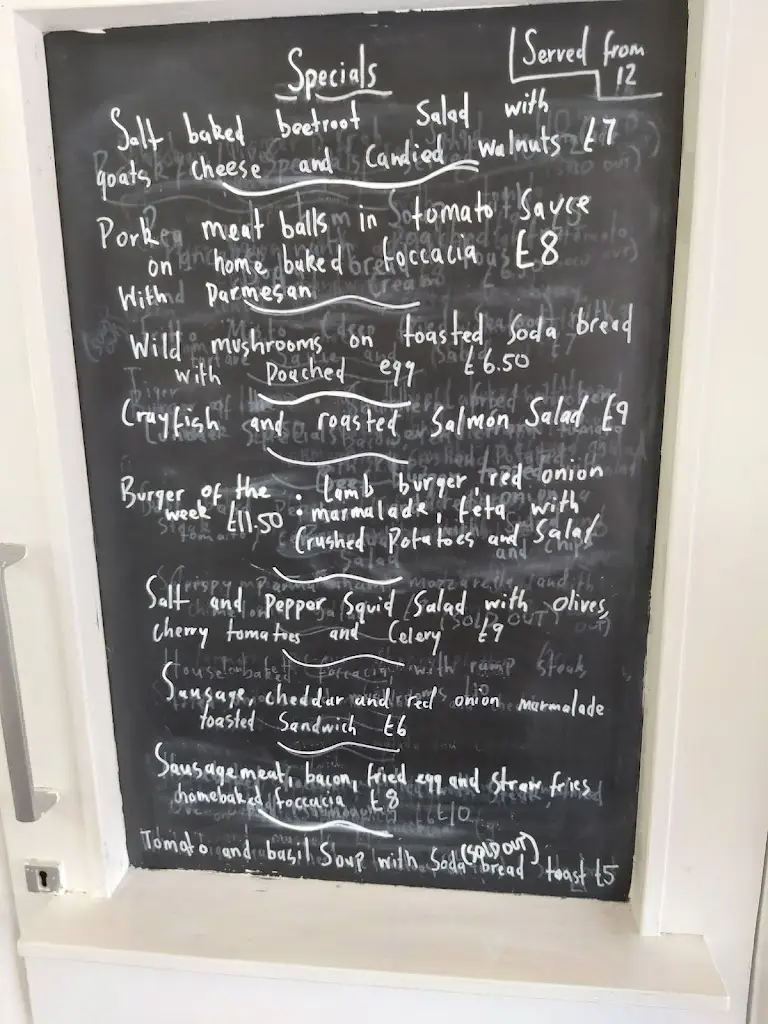 Specials
Served from
12
Salt baked beetroot Salad with
goats cheese and Candied walnuts £7
Pork meat balls in tomato Sauce
on home baked foccacia £8
With Parmesan
Wild mushrooms on toasted Soda bread
with Poached egg £6.50
Crayfish and roasted Salmon Salad £9
Burger of the : lamb burger, red onion
week £11.50 : marmalade, feta with
Crushed Potatoes and Salad
Salt and Pepper Squid Salad with Olives,
cherry tomatoes and Celery £9
Sausage, cheddar and red onion marmalade
toasted Sandwich £6
Sausagemeat, bacon, fried egg and Straw fries
homebaked foccacia £8
Tomato and basil Soup with Soda bread toast £5
(SOLD OUT)